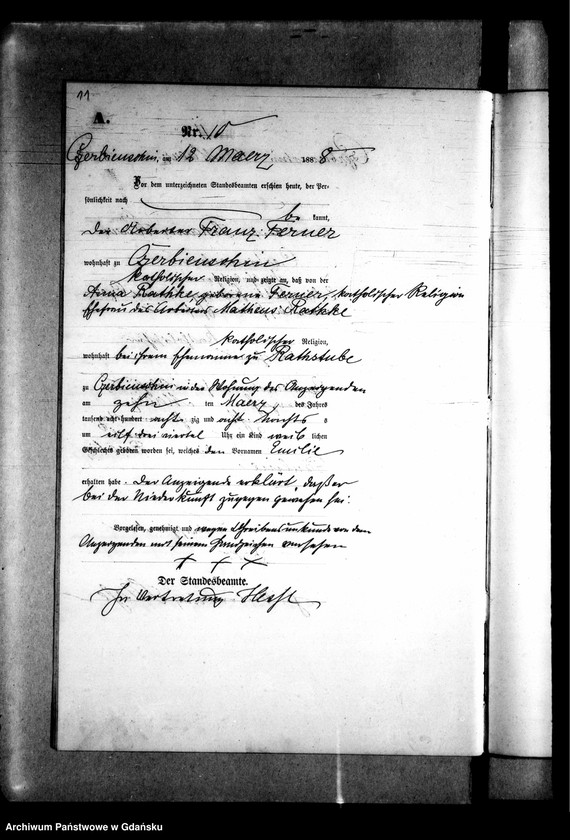 11
A.
Nr. 10
Czerbienschin, am 12 Maerz 1888
Vor dem unterzeichneten Standesbeamten erschien heute, der Per-
sönlichkeit nach
be kannt,
der Arbeiter Franz Ferner
wohnhaft zu Czerbienschin
katholischer Religion, und zeigte an, daß von der
Anna Rathke geborene Ferner, katholischer Religion
Ehefrau des Arbeiters Matheus Rathke
katholischer Religion,
wohnhaft bei ihrem Ehemanne zu Rathstube
zu Czerbienschin in der Wohnung des Anzeigenden
am zehn ten Maerz des Jahres
tausend acht hundert acht zig und acht Nachts
um eilf drei viertel Uhr ein Kind weib lichen
Geschlechts geboren worden sei, welches den Vornamen Emilie
erhalten habe. Der Anzeigende erklärt, daß er
bei der Niederkunft zugegen gewesen sei.
Vorgelesen, genehmigt und wegen Schreibensunkunde von dem
Anzeigenden mit seinem Handzeichen versehen
+ + +
Der Standesbeamte.
In Vertretung
Archiwum Państwowe w Gdańsku